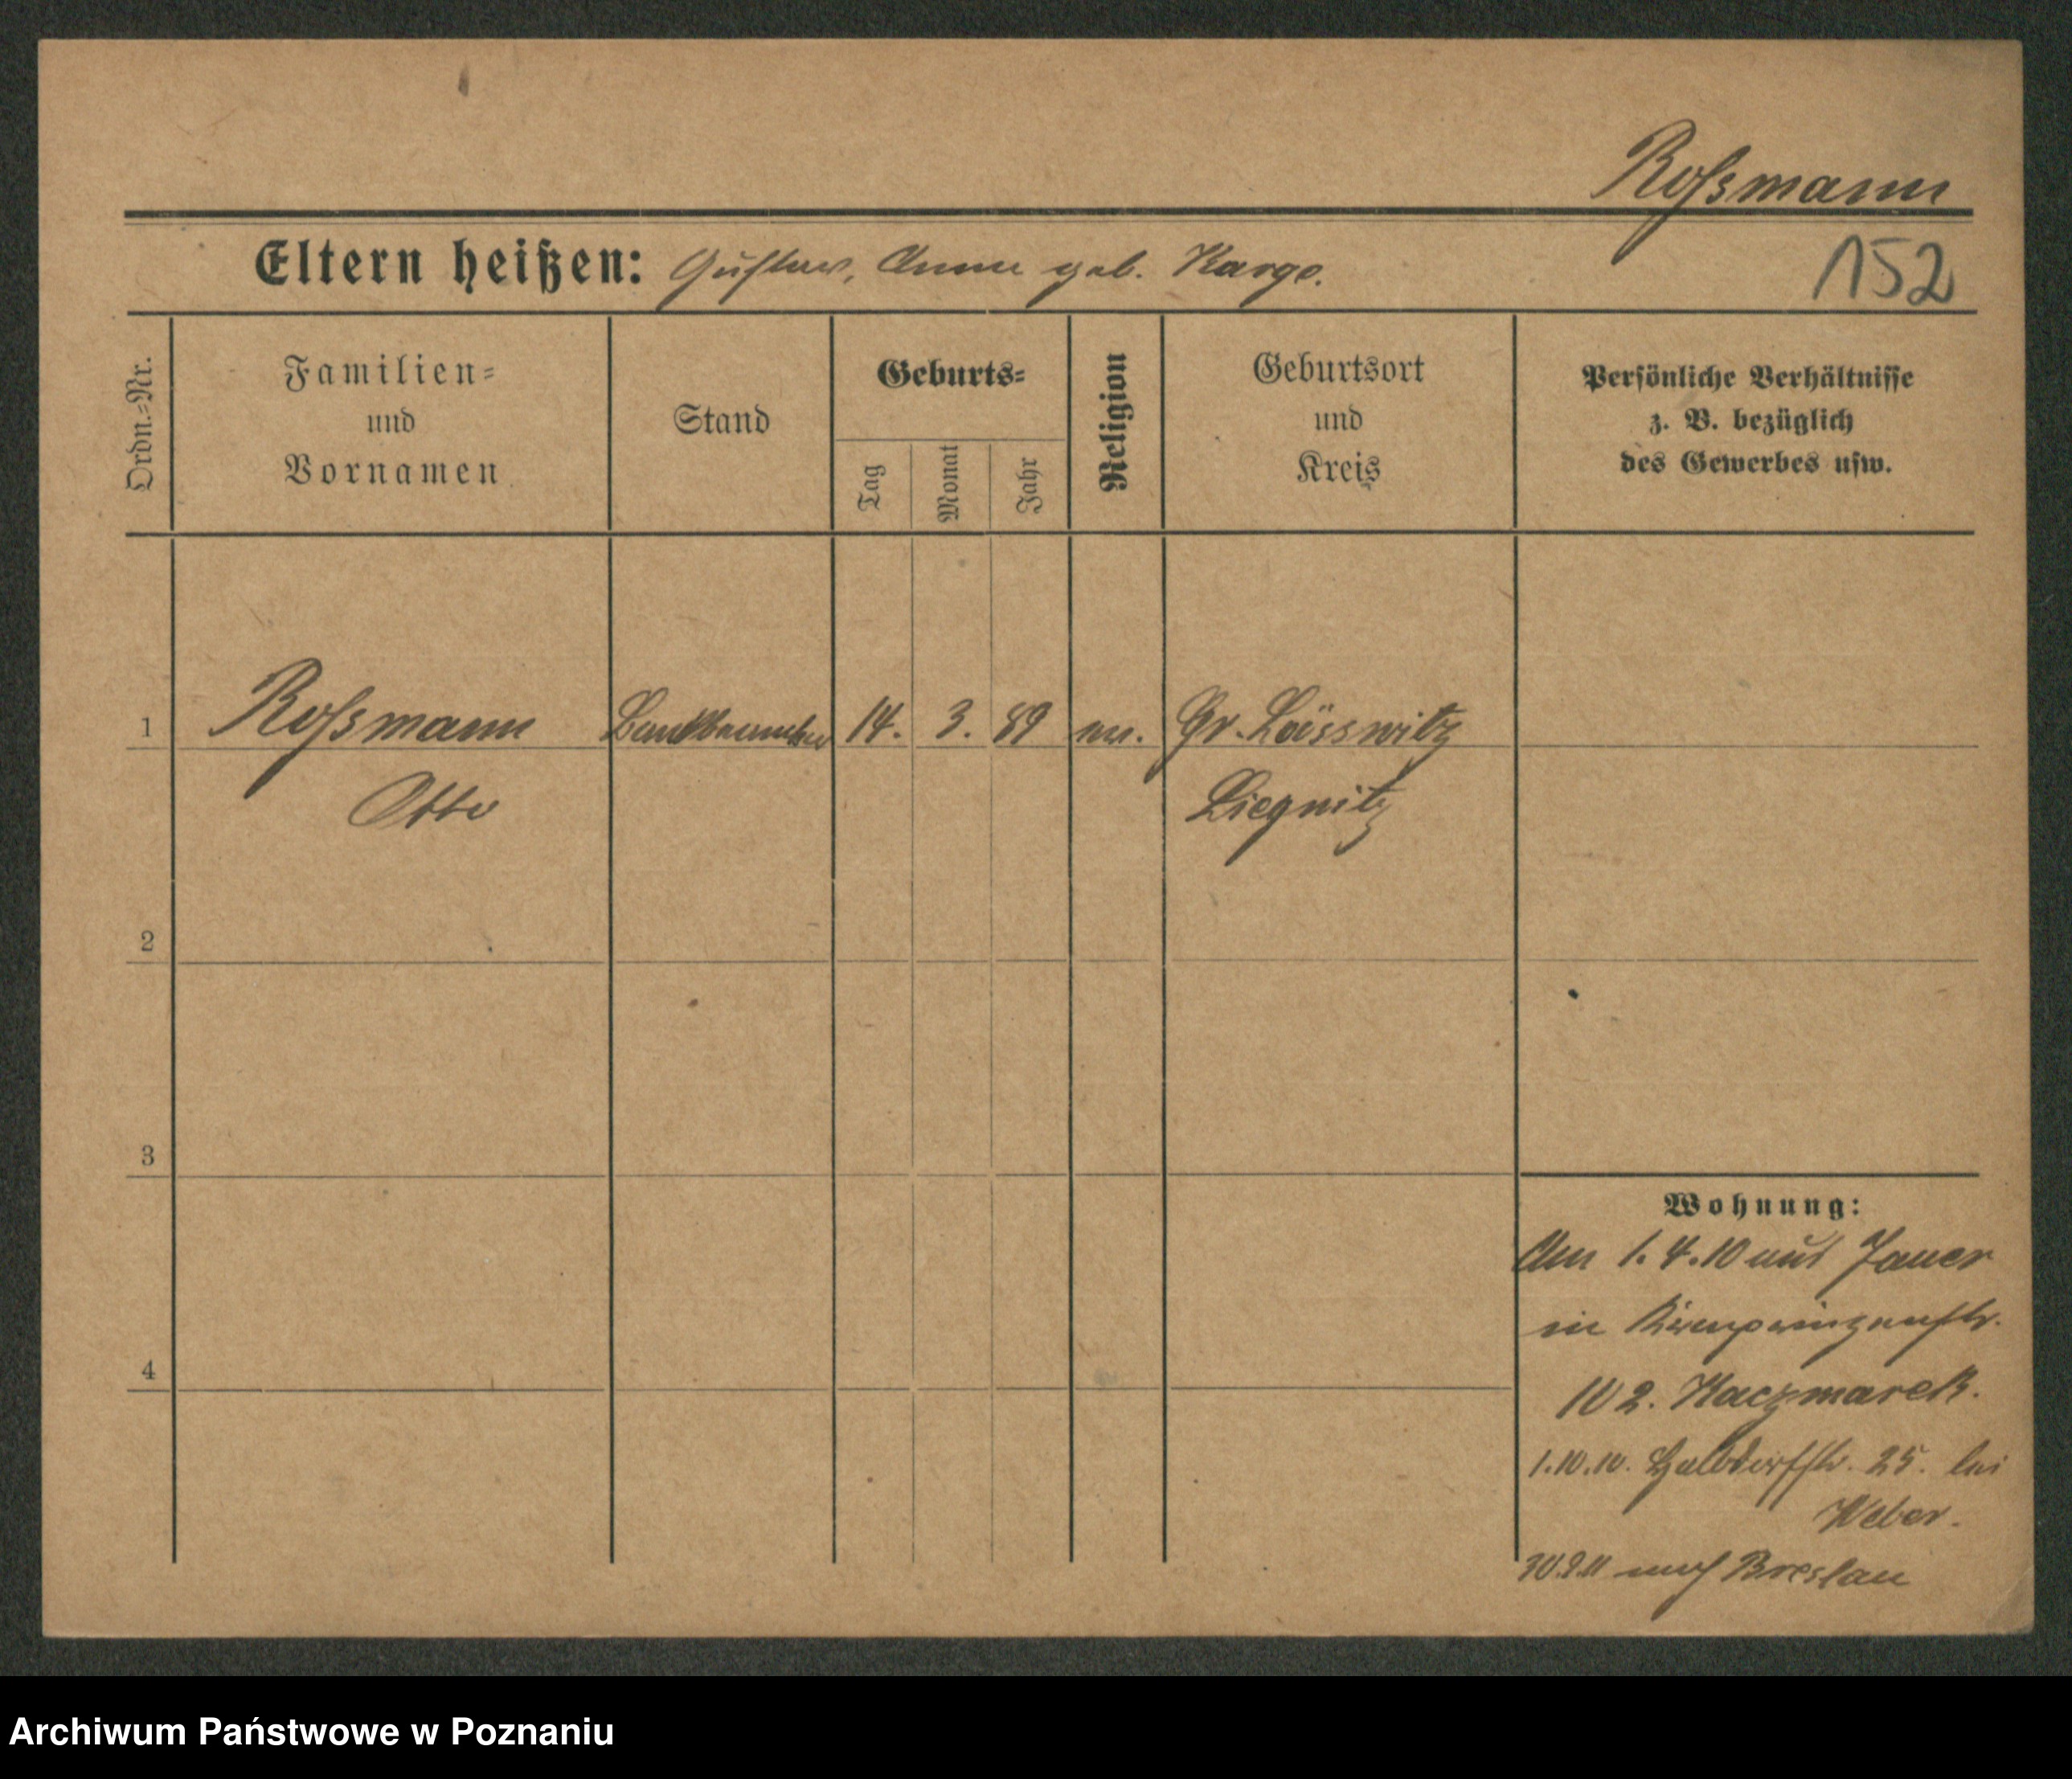 Roßmann
Eltern heißen: Gustav, Anna geb. Kargo.
152
Ordn.-Nr.
Familien-
und
Vornamen
Stand
Geburts-
Tag
Monat
Jahr
Religion
Geburtsort
und
Kreis
Persönliche Verhältnisse
z. B. bezüglich
des Gewerbes usw.
1 Roßmann Bankbeamter 14. 3. 89 ev. Gr. Lässwitz
Otto Liegnitz
2
3
4
Wohnung:
Am 1.4.10 aus Jauer
in Kronprinzenstr.
102. Kaczmarek.
1.10.10. Halbdorfstr. 25. bei
Weber.
30.9.11 nach Breslau
Archiwum Państwowe w Poznaniu